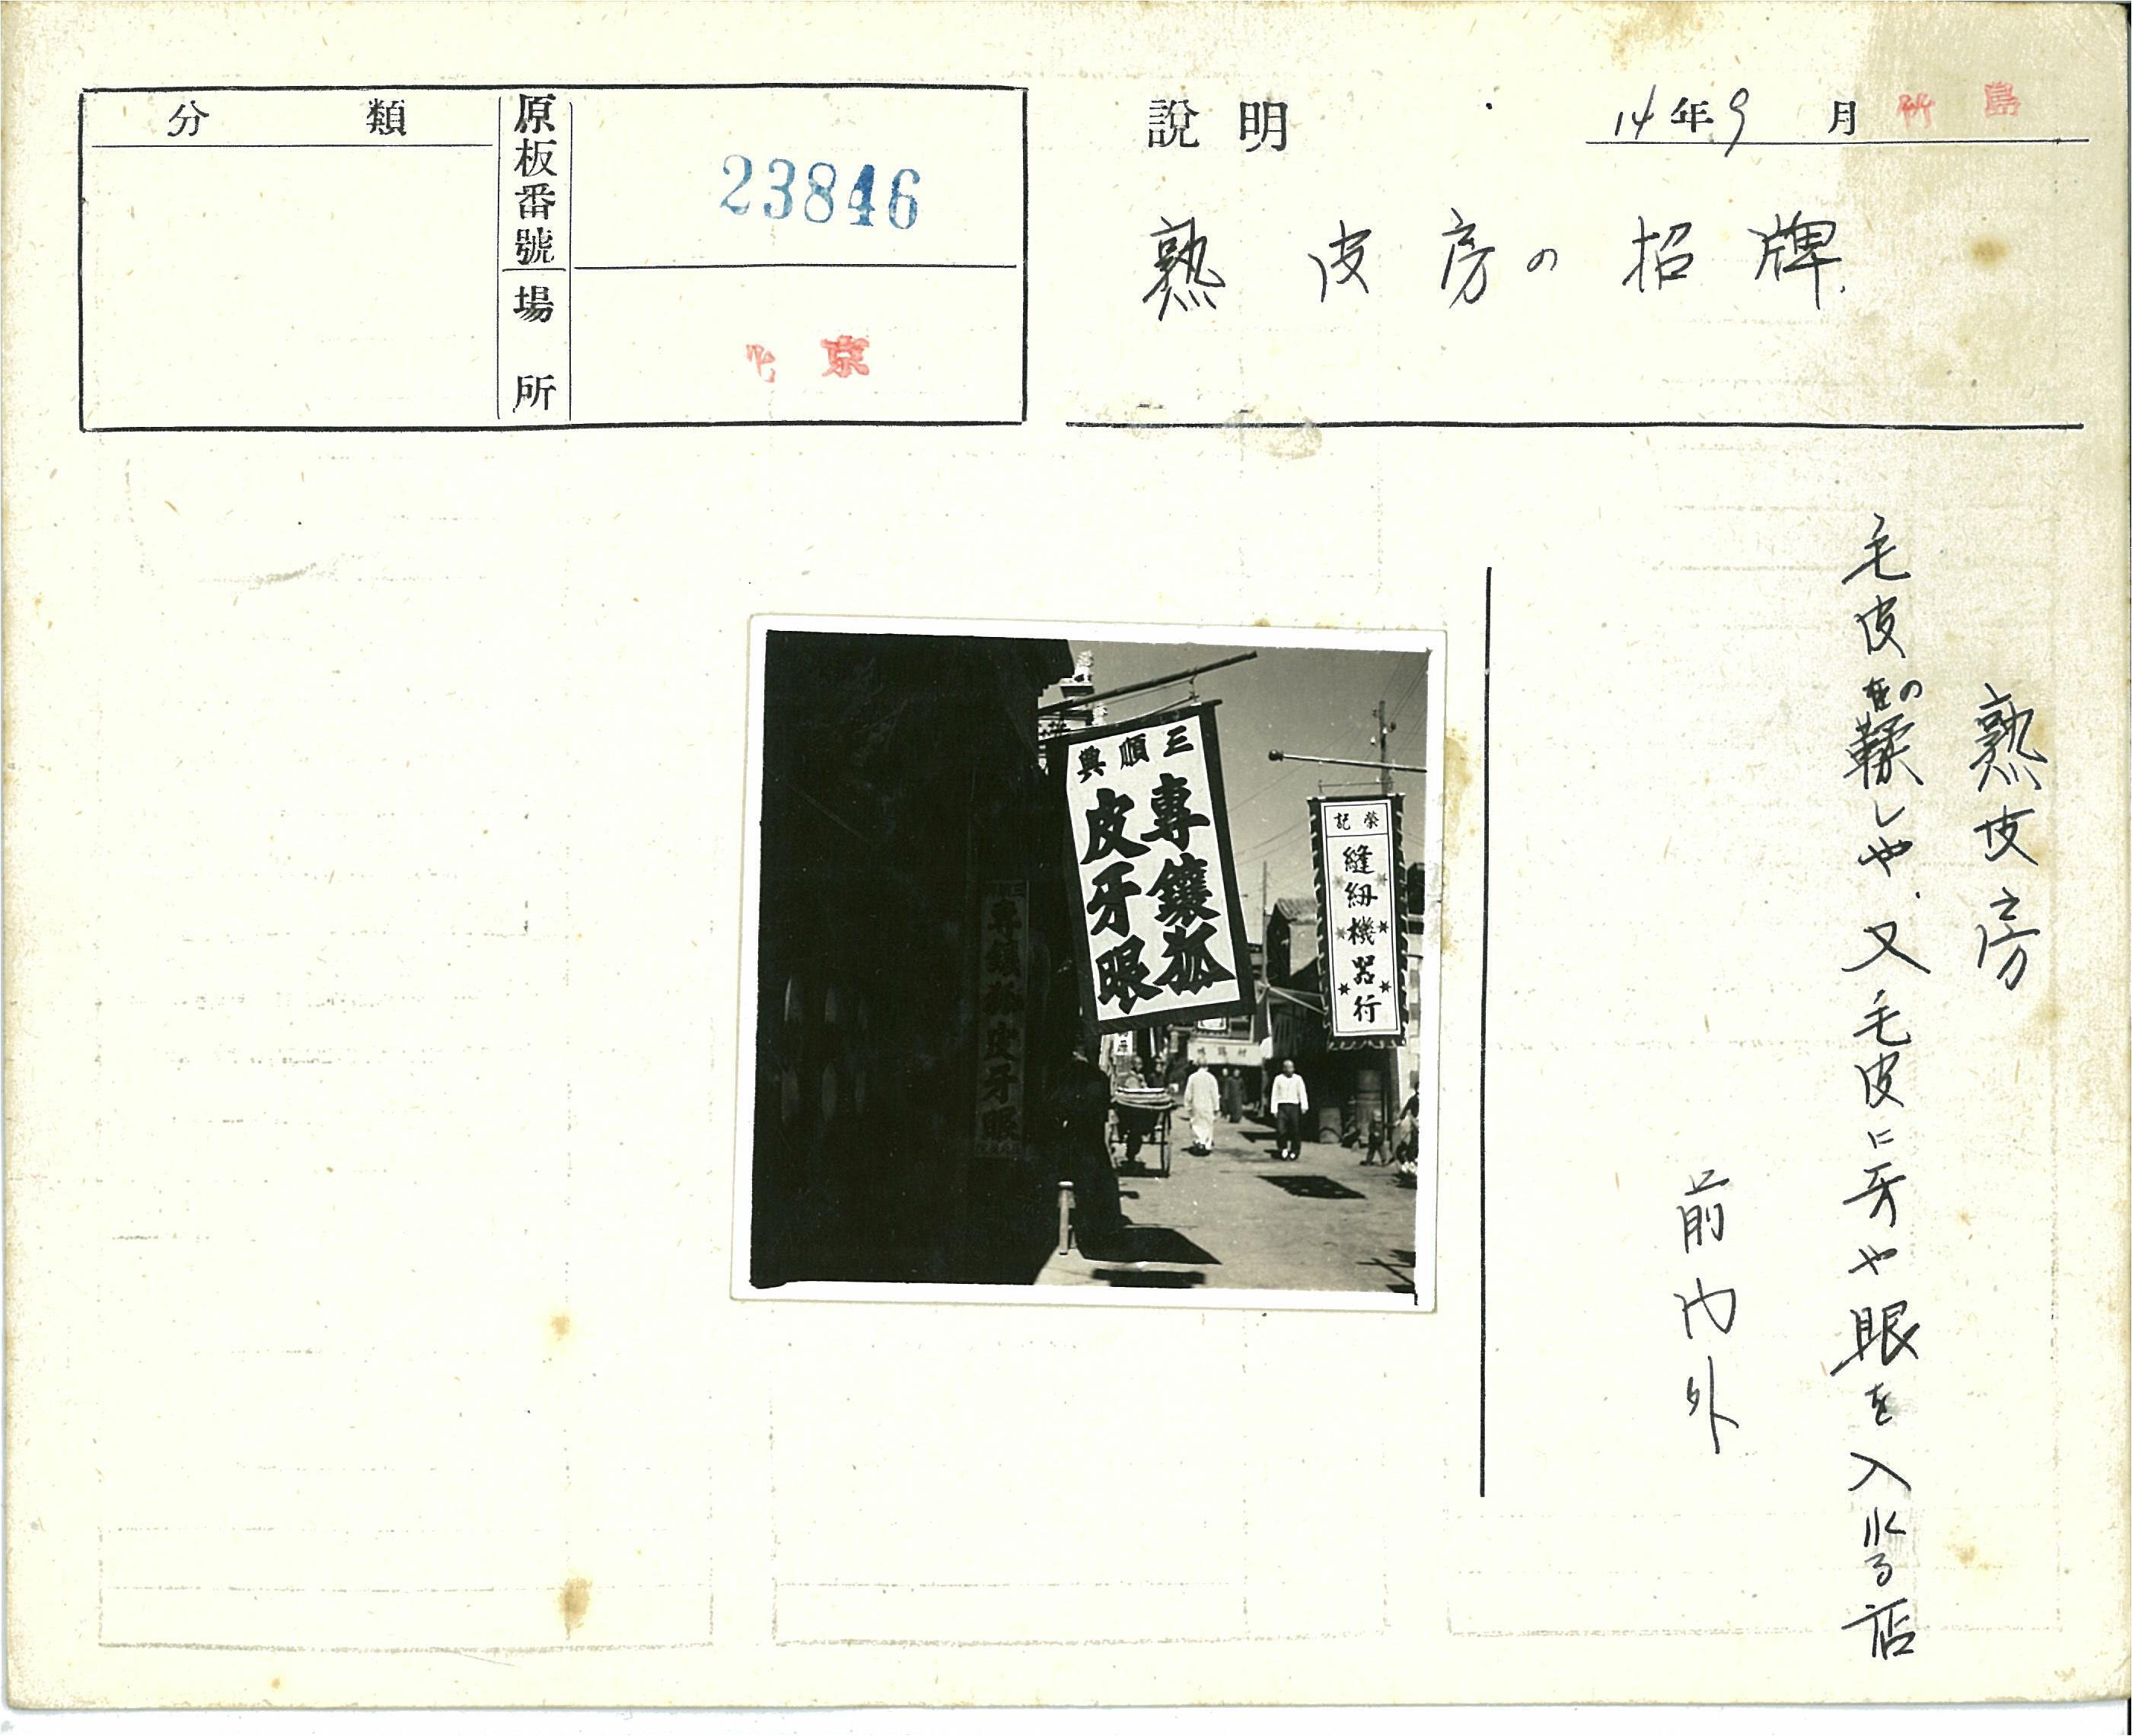 分類
原板番號
23846
場所
北京
說明
14年9月
竹島
熟皮房の招牌
熟皮房
毛皮の鞣しや、又毛皮に牙や眼を入れる店
前門外
三順興
專鑲狐
皮牙眼
榮記
縫紉機器行
專鑲狐皮牙眼